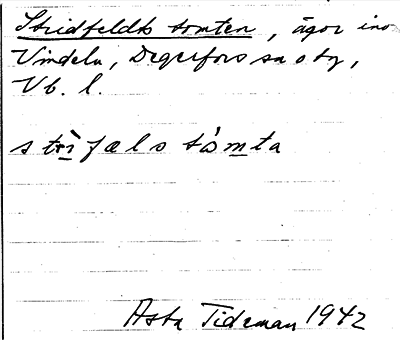 Stridfeldts tomten, ägor ino
Vindeln, Degerfors sn o by,
Vb. l.
strìfæls tòmta
Asta Tideman 1942